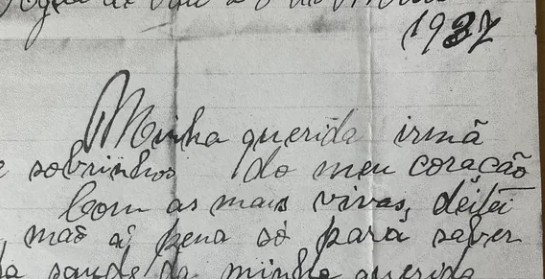 1937
Minha querida irmã
e sobrinhos do meu coração
Com as mais vivas, deitei
mão á pena só para saber
da saude da minha querida